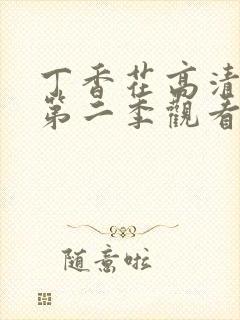 丁香茬高清
第二季觀看
随意啦